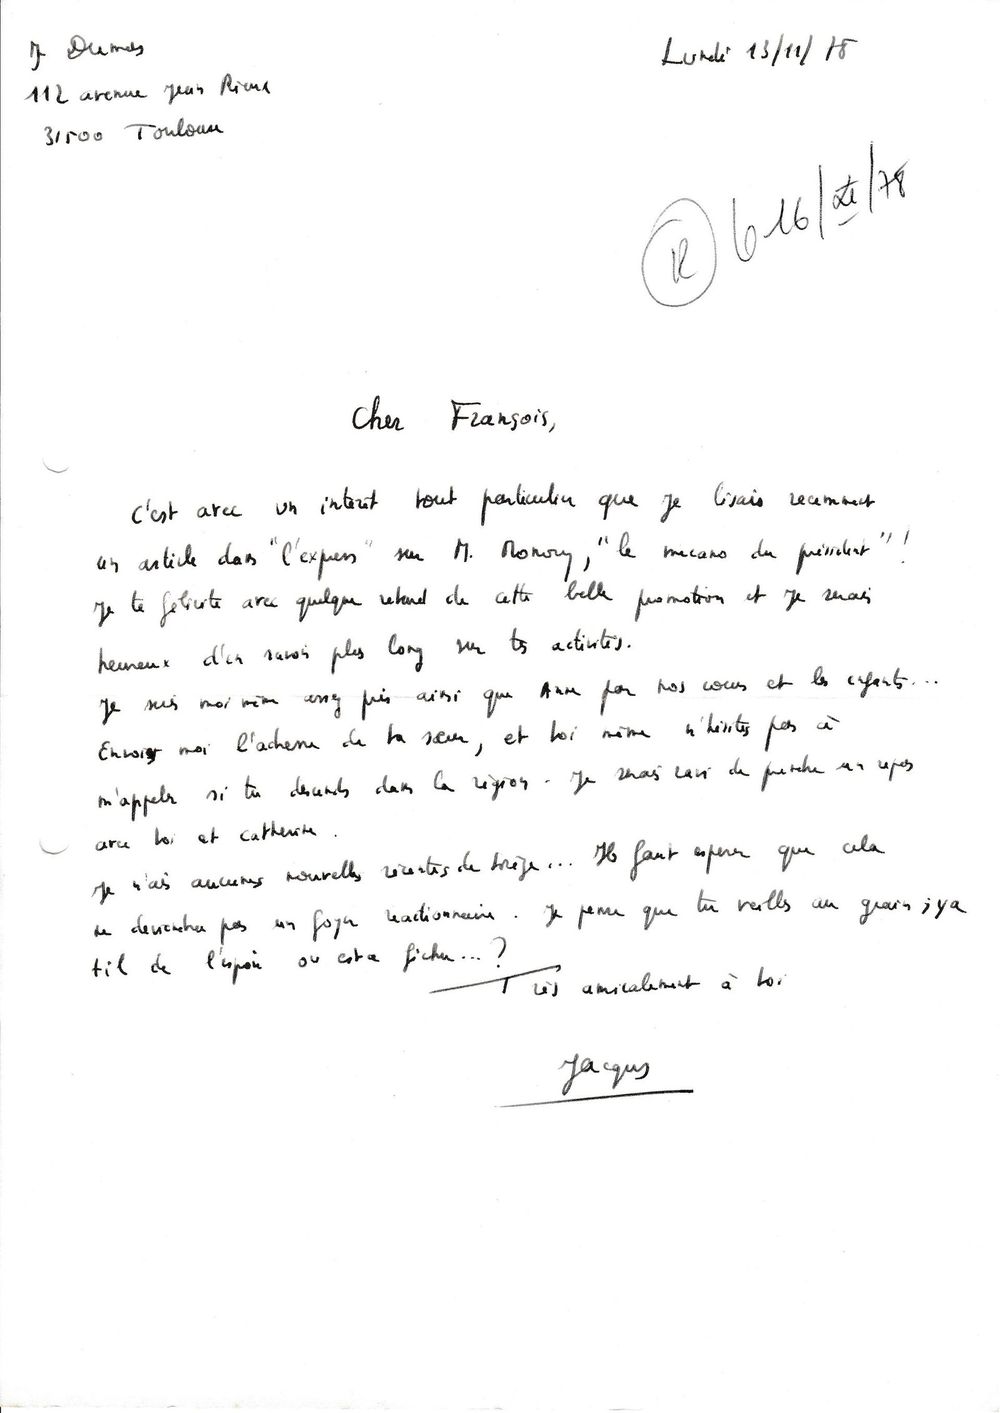 J Dumas
Lundi 13/11/78
112 avenue Jean Rieux
31500 Toulouse
R 16/XI/78
Cher François,
C'est avec un interêt tout particulier que je lisais recemment
un article dans "l'express" sur M. Monory, "le mecano du président"!
Je te félicite avec quelque retard de cette belle promotion et je serais
heureux d'en savoir plus long sur tes activités.
Je suis moi même assez pris ainsi que Anne par nos cours et les enfants...
Envoies moi l'adresse de ta sœur, et toi même n'hésites pas à
m'appeler si tu descends dans la région. Je serais ravi de prendre un repas
avec toi et catherine.
Je n'ais aucunes nouvelles récentes de ... Il faut esperer que cela
ne deviendra pas un foyer reactionnaire. Je pense que tu veilles au grain ; ya
til de l'espoir ou est ce fichu...?
Très amicalement à toi
Jacques